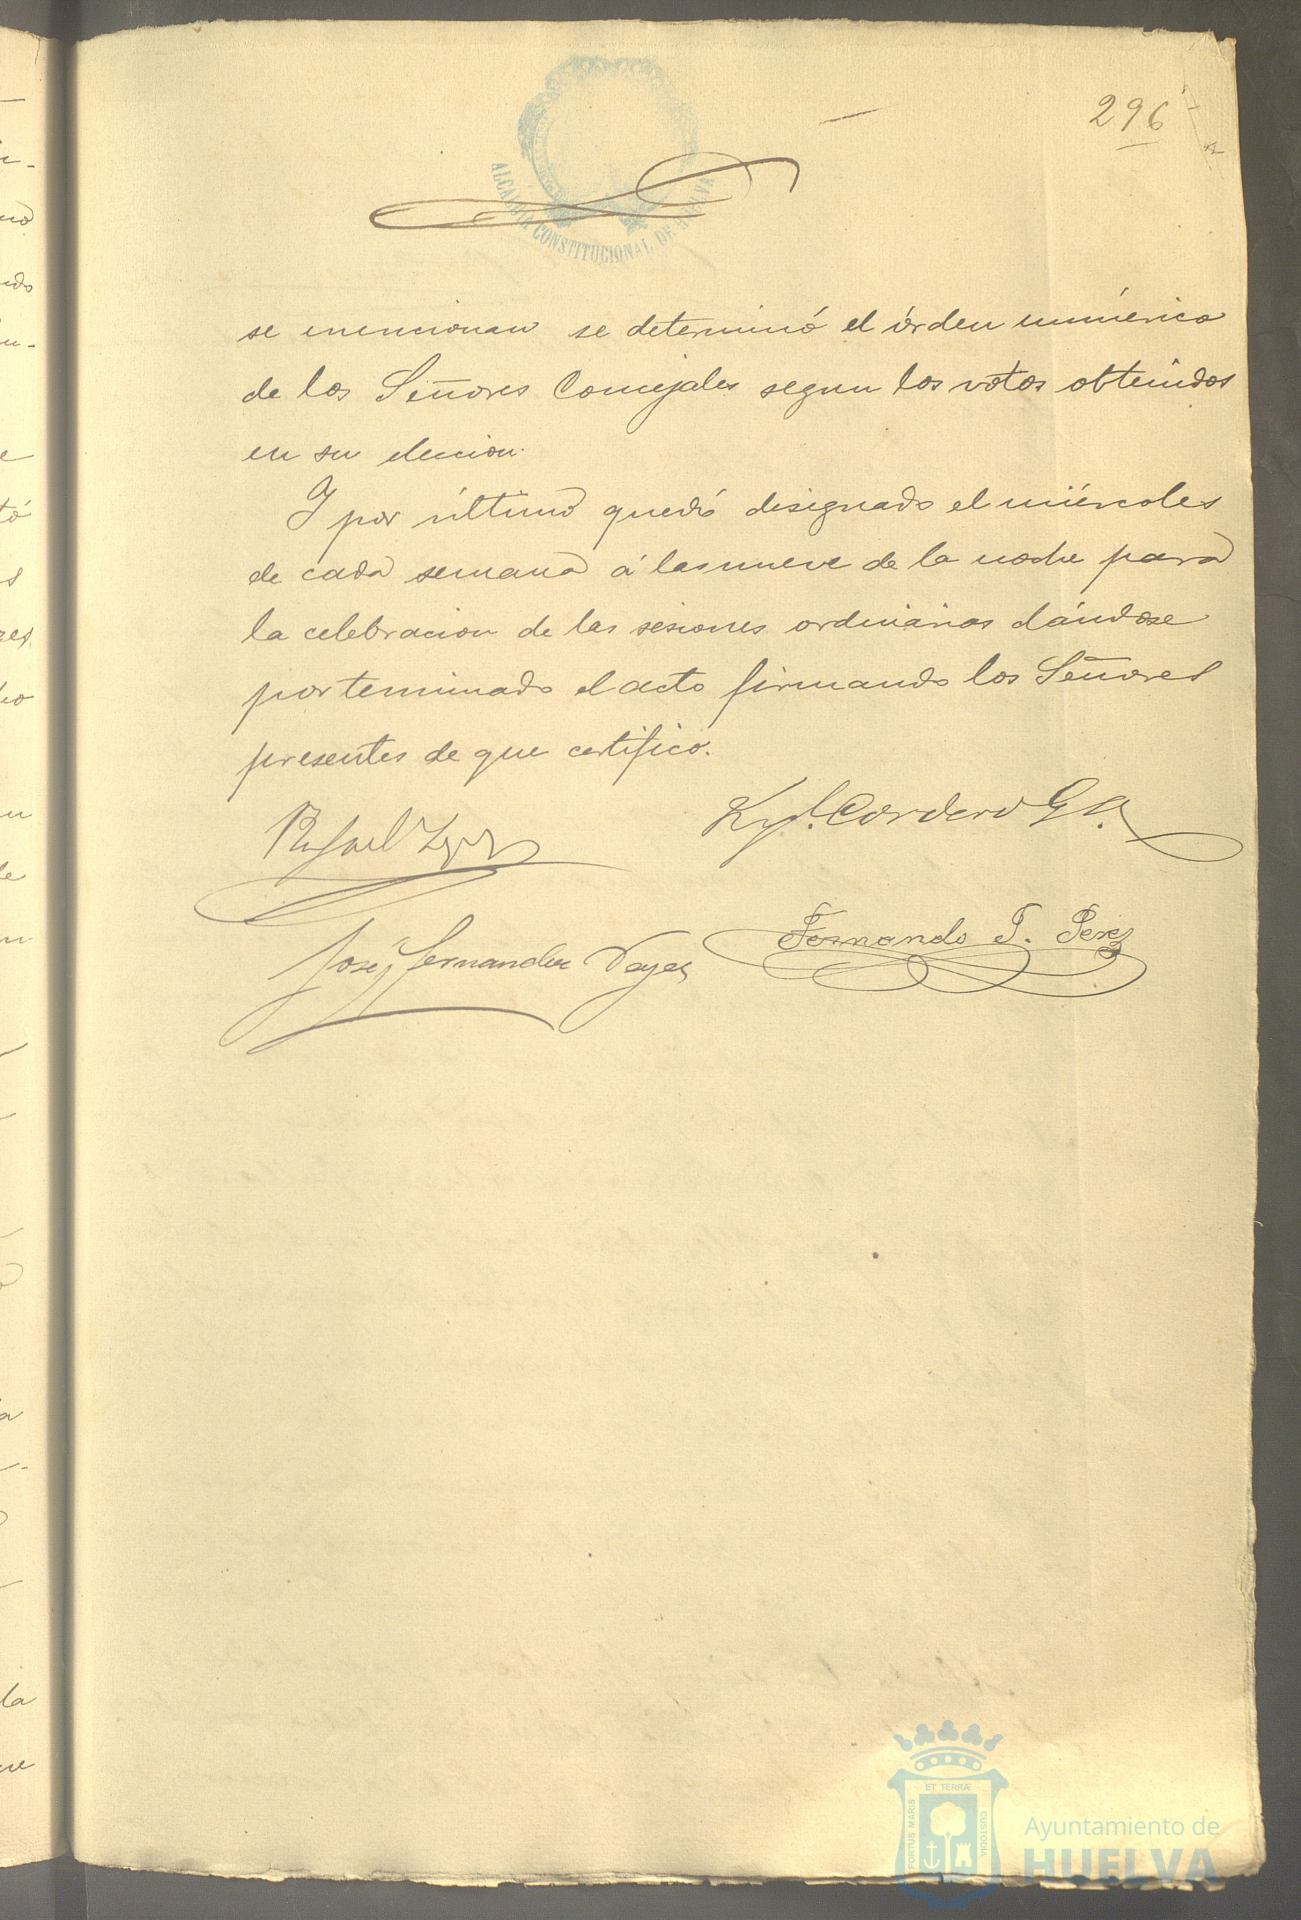 296
ALCALDIA CONSTITUCIONAL DE HUELVA
se mencionan se determinó el órden numérico
de los Señores Concejales segun los votos obtenidos
en su eleccion.
Y por último quedó designado el miércoles
de cada semana á las nueve de la noche para
la celebracion de las sesiones ordinarias dándose
por terminado el acto firmando los Señores
presentes de que certifico.
Rafael
Cordero
José Fernandez
Fernando T. Perez
PORTUS MARIS ET TERRÆ CUSTODIA
Ayuntamiento de
HUELVA